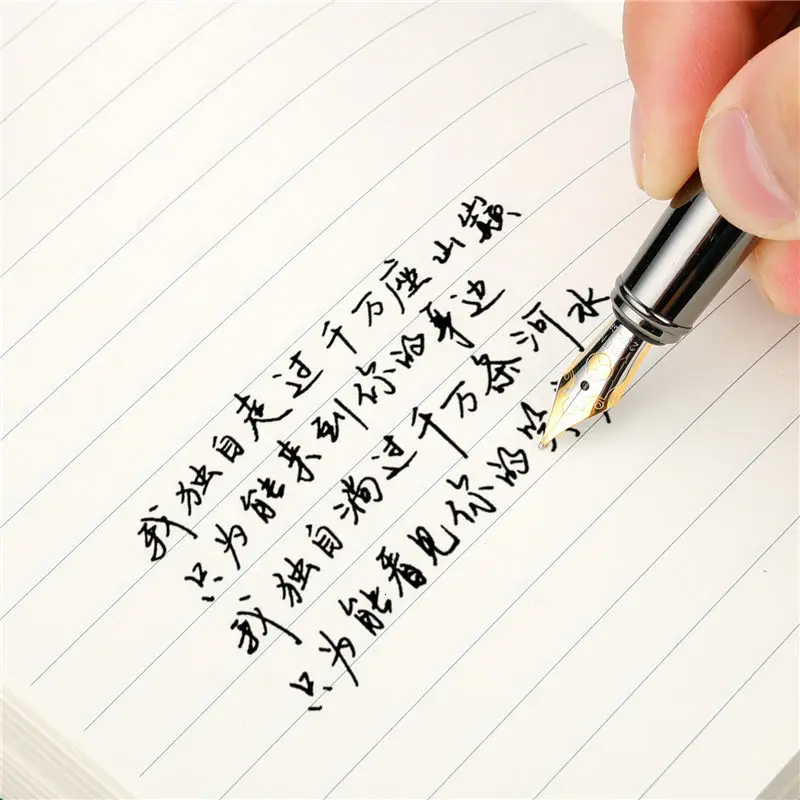 我独自走过千万座山巅
只为能来到你的身边
我独自淌过千万条河水
只为能看见你的